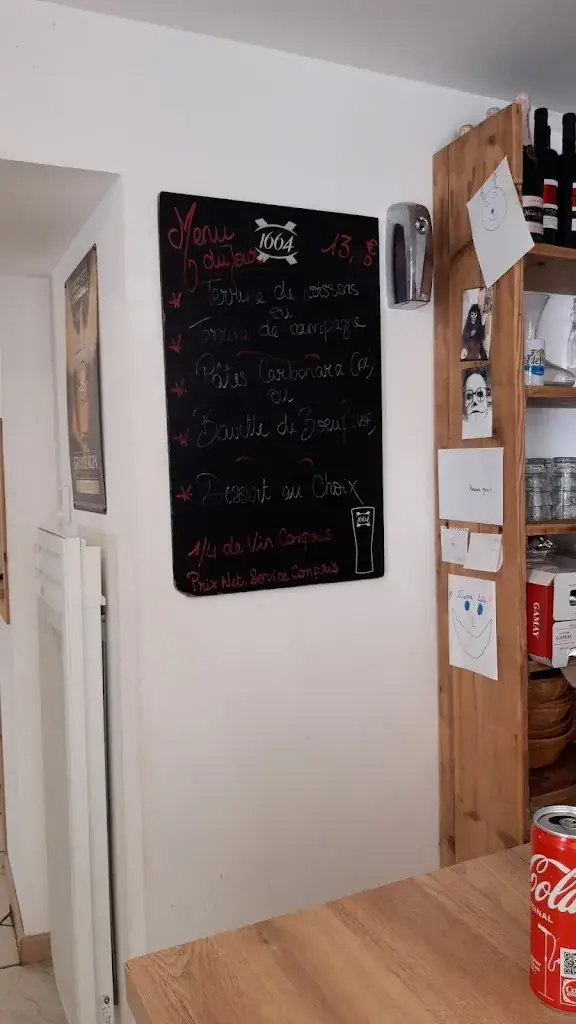 Menu
du Jour
1664
13,
€
Terrine de poissons
ou
Terrine de campagne
Pâtes Carbonara
ou
Bavette de Boeuf
Dessert au Choix
1664
1/4 de Vin Compris
Prix Net, Service Compris
GAMAY
GAMAY
Cola
INAL